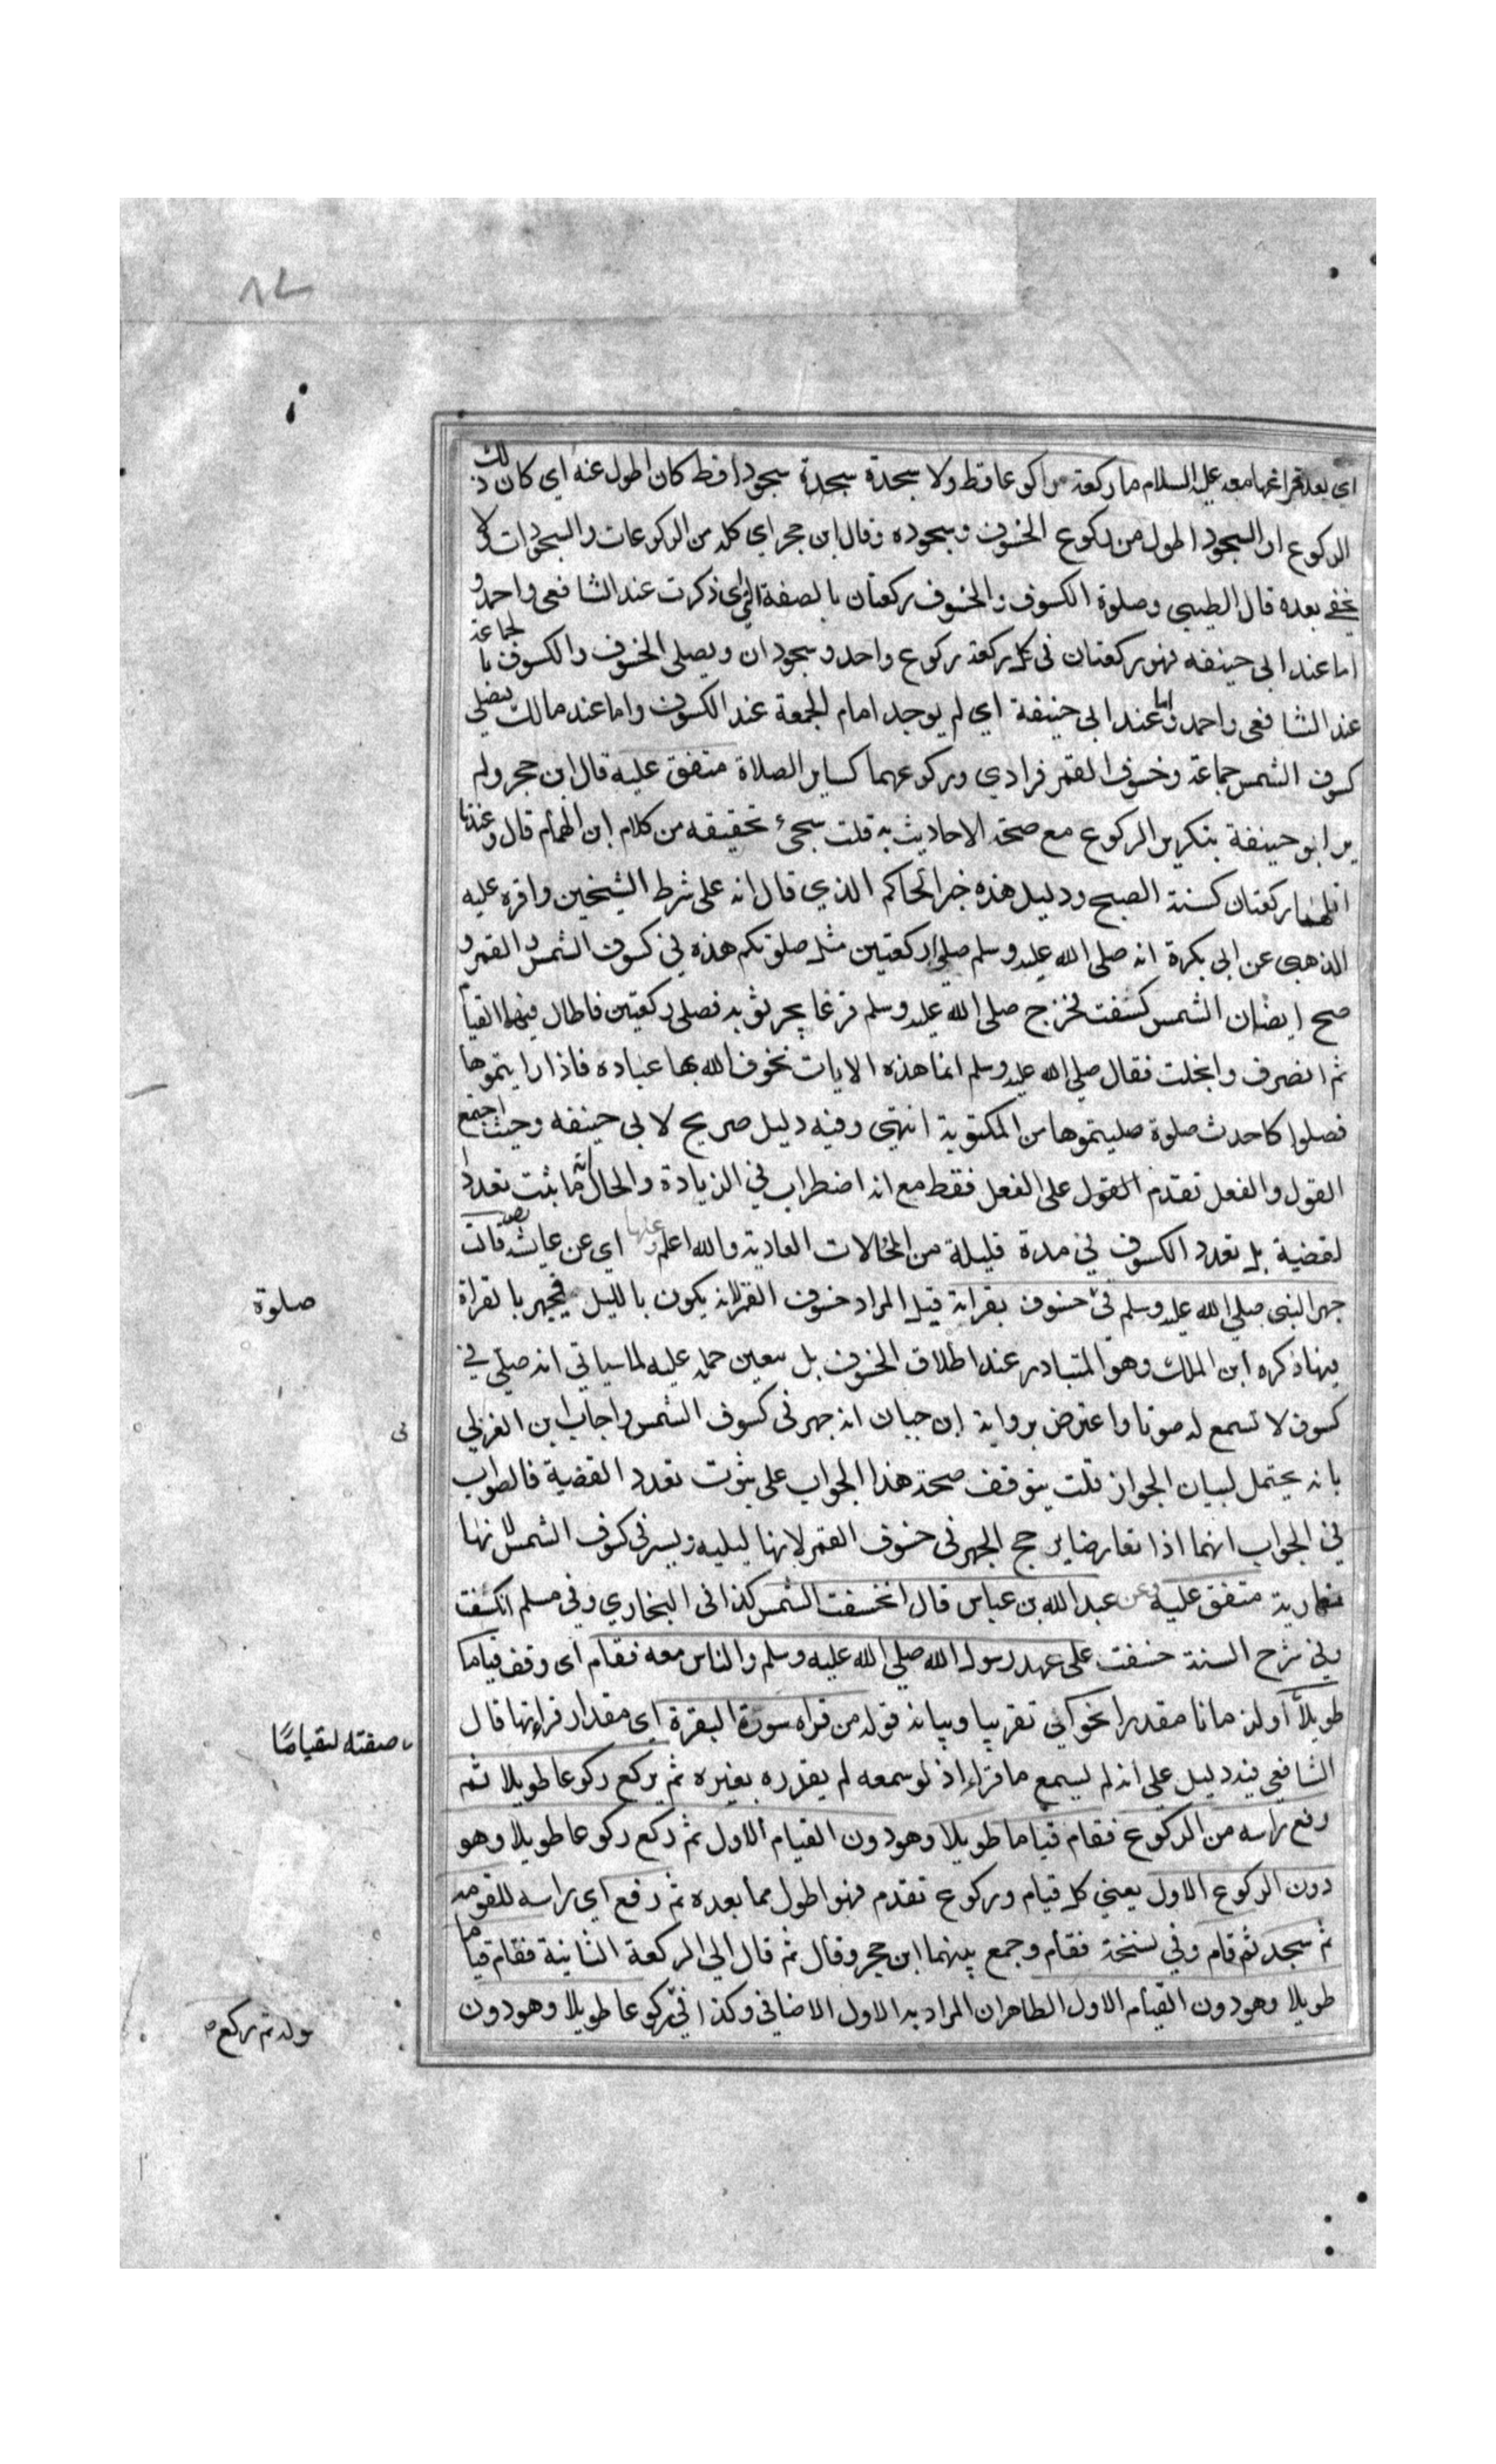 اي بعد فراغها معه عليه السلام ما ركعة ركوعا قط ولا سجدة سجدة سجودا قط كان اطول عنه اي كان ذلك
الركوع او السجود اطول من ركوع الخسوف وسجوده وقال ابن حجر اي كله من الركوعات والسجودات كلا
يخفى بعده قال الطيبي وصلوة الكسوف والخسوف ركعتان بالصفة التي ذكرت عند الشافعي واحمد و
اما عند ابي حنيفه فهو ركعتان في كل ركعة ركوع واحد وسجودان ويصلي الخسوف والكسوف بالجماعة
عند الشافعي واحمد واما عند ابي حنيفة اي لم يوجد امام الجمعة عند الكسوف واما عند مالك يصلي
كسوف الشمس جماعة وخسوف القمر فرادي وركوعهما كساير الصلاة متفق عليه قال ابن حجر ولم
ير ابو حنيفة بتكرير الركوع مع صحة الاحاديث به قلت سجئ تحقيقه من كلام ابن الهمام قال وعندنا
اقلها ركعتان كسنة الصبح ودليل هذه خبر الحاكم الذي قال انه على شرط الشيخين واقره عليه
الذهبي عن ابي بكرة انه صلى الله عليه وسلم صلي ركعتين مثل صلوتكم هذه في كسوف الشمس والقمر و
صح ايضا ان الشمس كسفت فخرج صلى الله عليه وسلم فزعا يجر ثوبه فصلى ركعتين فاطال فيها القيام
ثم انصرف وانجلت فقال صلي الله عليه وسلم انما هذه الايات يخوف الله بها عباده فاذا رايتموها
فصلوا كاحدث صلوة صليتموها من المكتوبة انتهى وفيه دليل صريح لابي حنيفه وحيث اجتمع
القول والفعل تقدم القول على الفعل فقط مع انه اضطراب في الزيادة والحال انه ما ثبت تعدد ا
لقضية بل تعدد الكسوف في مدة قليلة من المحالات العادية والله اعلم وعنها اي عن عايشه قالت
جهر النبي صلي الله عليه وسلم في خسوف بقراته قيل المراد خسوف القمر لانه يكون بالليل فيجهر بالقراة
فيها ذكره ابن الملك وهو المتبادر عند اطلاق الخسوف بل يتعين حمله عليه لما سياتي انه صلي في
كسوف لا تسمع له صوتا واعترض برواية ابن حبان انه جهر في كسوف الشمس واجاب ابن العربي
بانه يحتمل لبيان الجواز قلت يتوقف صحة هذا الجواب على ثبوت تعدد القضية فالصواب
في الجواب انهما اذا تعارضا يرجح الجهر في خسوف القمر لانها ليليه ويسر في كسوف الشمس لانها
نهارية متفق عليه وعن عبد الله بن عباس قال انخسفت الشمس كذا في البخاري وفي مسلم انكسفت
وفي شرح السنة خسفت على عهد رسول الله صلي الله عليه وسلم والناس معه فقام اي وقف قياما
طويلا او لزمانا مقدرا نحو اي تقريبا وبيانه قوله من قراه سورة البقرة اي مقدار قراءتها قال
الشافعي فيه دليل على انه لم يسمع ما قراء اذ لو سمعه لم يقدره بغيره ثم يركع ركوعا طويلا ثم
رفع راسه من الركوع فقام قياما طويلا وهو دون القيام الاول ثم ركع ركوعا طويلا وهو
دون الركوع الاول يعني كل قيام وركوع تقدم فهو اطول مما بعده ثم رفع اي راسه للقومه
ثم سجد ثم قام وفي نسخة فقام وجمع بينهما ابن حجر وقال ثم قال الي الركعة الثانية فقام قياما
طويلا وهو دون القيام الاول الظاهر ان المراد به الاول الاضافي وكذا في ركوعا طويلا وهو دون
صلوة
في
صفته لقياما
قوله ثم ركع